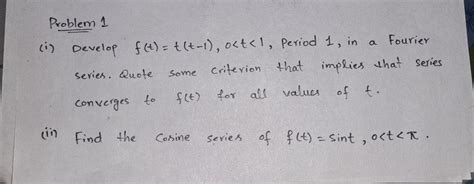 Problem 1
(i) Develop f(t) = t(t-1), 0<t<1, Period 1, in a Fourier
series. Quote some criterion that implies that series
converges to f(t) for all values of t.
(ii) Find the Cosine series of f(t) = sint, 0<t<π.